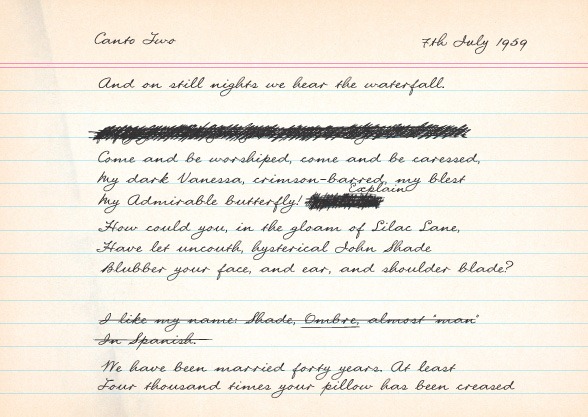 Canto Two
7th July 1959
And on still nights we hear the waterfall.
Come and be worshiped, come and be caressed,
My dark Vanessa, crimson-barred, my blest
Explain
My Admirable butterfly!
How could you, in the gloam of Lilac Lane,
Have let uncouth, hysterical John Shade
Blubber your face, and ear, and shoulder blade?
I like my name: Shade, Ombre, almost "man"
In Spanish.
We have been married forty years. At least
Four thousand times your pillow has been creased